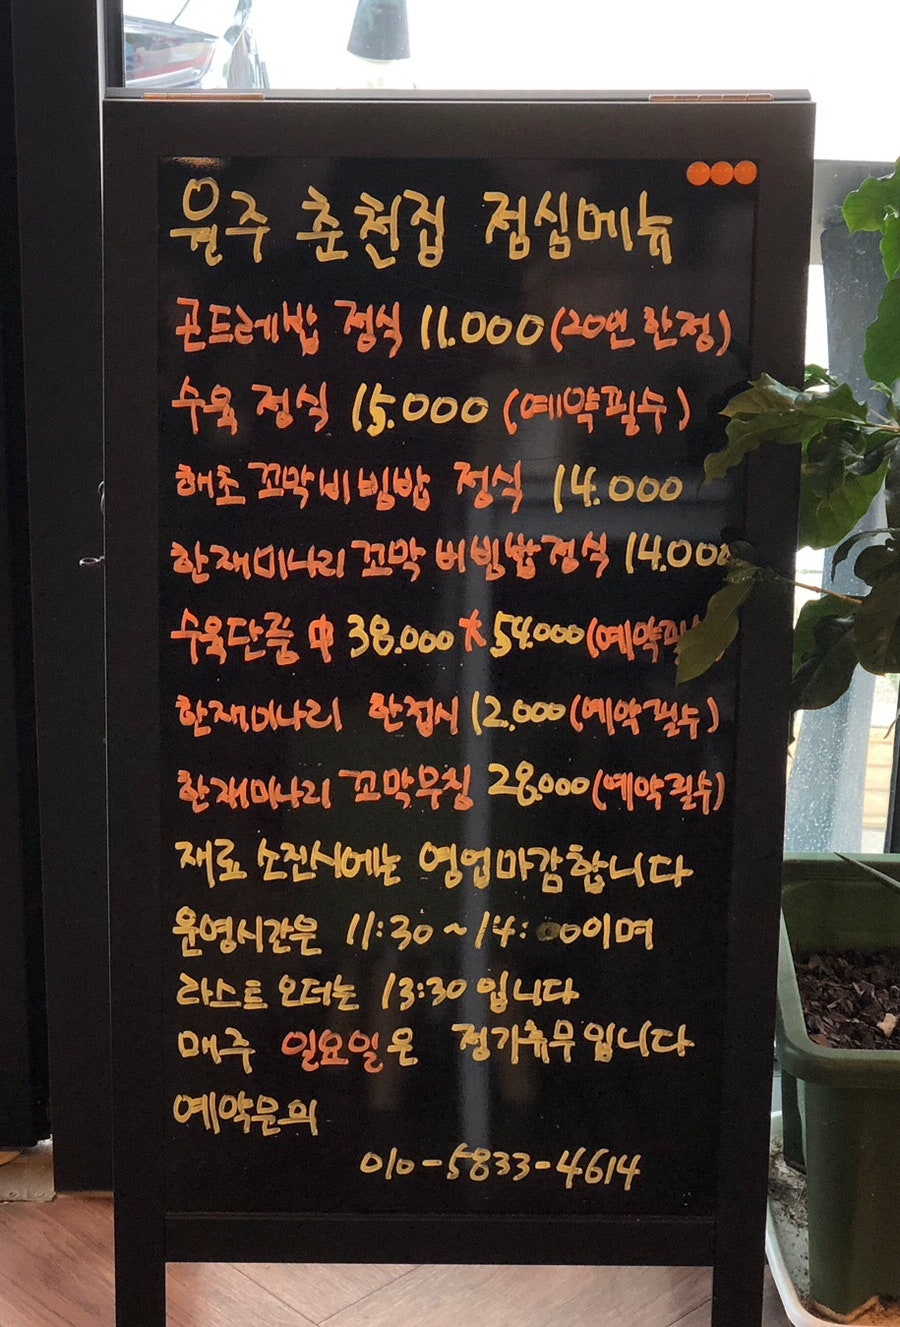 원주 춘천집 점심메뉴
곤드레밥 정식 11.000 (20인 한정)
수육 정식 15.000 (예약필수)
해초 꼬막비빔밥 정식 14.000
한재미나리 꼬막 비빔밥정식 14.000
수육단품 中 38.000 大 54.000 (예약필
한재미나리 한접시 12.000 (예약필수)
한재미나리 꼬막무침 28.000 (예약필수)
재료 소진시에는 영업마감합니다
운영시간은 11:30~14:00이며
라스트 오더는 13:30 입니다
매주 일요일은 정기휴무입니다
예약문의
010-5833-4614